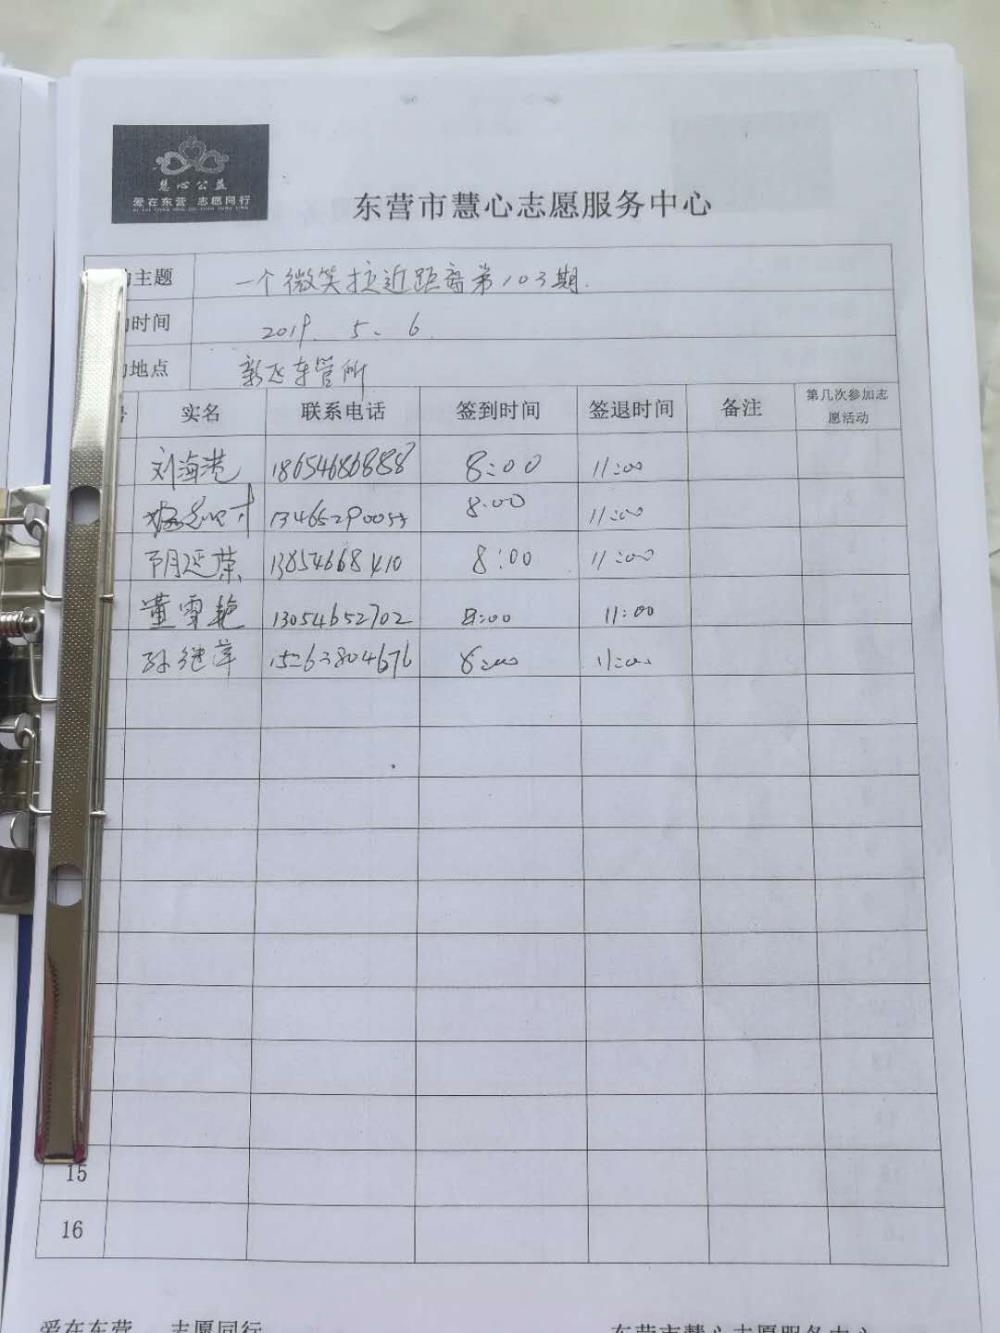 慧心公益
爱在东营 志愿同行
东营市慧心志愿服务中心
主题 一个微笑拉近距离第103期.
时间 2019.5.6.
地点 新飞车管所
实名 联系电话 签到时间 签退时间 备注 第几次参加志愿活动
刘海港 18654686888 8:00 11:00
13465290053 8:00 11:00
明延荣 13854668410 8:00 11:00
董雪艳 13054652702 8:00 11:00
孙继萍 15263804676 8:00 11:00
15
16
爱在东营 志愿同行 东营市慧心志愿服务中心